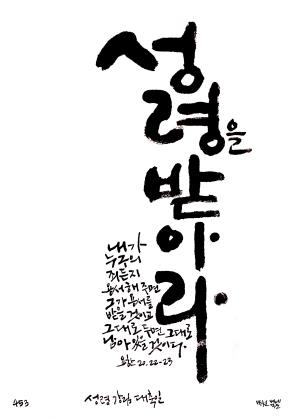 성령을
받아라.
내가
누구의
죄든지
용서해 주면
그가 용서를
받을 것이고
그대로 두면 그대로
남아 있을 것이다.
요한 20,22-23
453
성령 강림 대축일